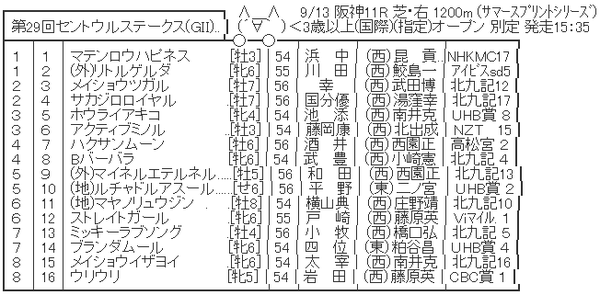 第29回セントウルステークス(GII).. (´∀｀) 9/13 阪神11R 芝・右 1200m (サマースプリントシリーズ)
＜3歳以上(国際)(指定)オープン 別定 発走15:35
1 1 マテンロウハピネス [牡3] 54 浜 中 (西)昆 貢 NHKMC17
1 2 (外)リトルゲルダ [牝6] 55 川 田 (西)鮫島一 アイビスsd5
2 3 メイショウツガル [牡7] 56 幸 (西)武田博 北九記12
2 4 サカジロロイヤル [牡7] 56 国分優 (西)湯窪幸 北九記17
3 5 ホウライアキコ [牝4] 54 池 添 (西)南井克 UHB賞 8
3 6 アクティブミノル [牡3] 54 藤岡康 (西)北出成 NZT 15
4 7 ハクサンムーン [牡6] 56 酒 井 (西)西園正 高松宮 2
4 8 Bバーバラ [牝6] 54 武 豊 (西)小崎憲 北九記 4
5 9 (外)マイネルエテルネル..... [牡5] 56 和 田 (西)西園正 北九記13
5 10 (地)ルチャドルアスール... [せ6] 56 平 野 (東)二ノ宮 UHB賞 2
6 11 (地)マヤノリュウジン [牡8] 54 横山典 (西)庄野靖 北九記10
6 12 ストレイトガール [牝6] 55 戸 崎 (西)藤原英 Viマイル 1
7 13 ミッキーラブソング [牡4] 56 小 牧 (西)橋口弘 北九記 5
7 14 ブランダムール [牝6] 54 四 位 (東)粕谷昌 UHB賞 4
8 15 メイショウイザヨイ [牝6] 54 太 宰 (西)南井克 北九記16
8 16 ウリウリ [牝5] 54 岩 田 (西)藤原英 CBC賞 1